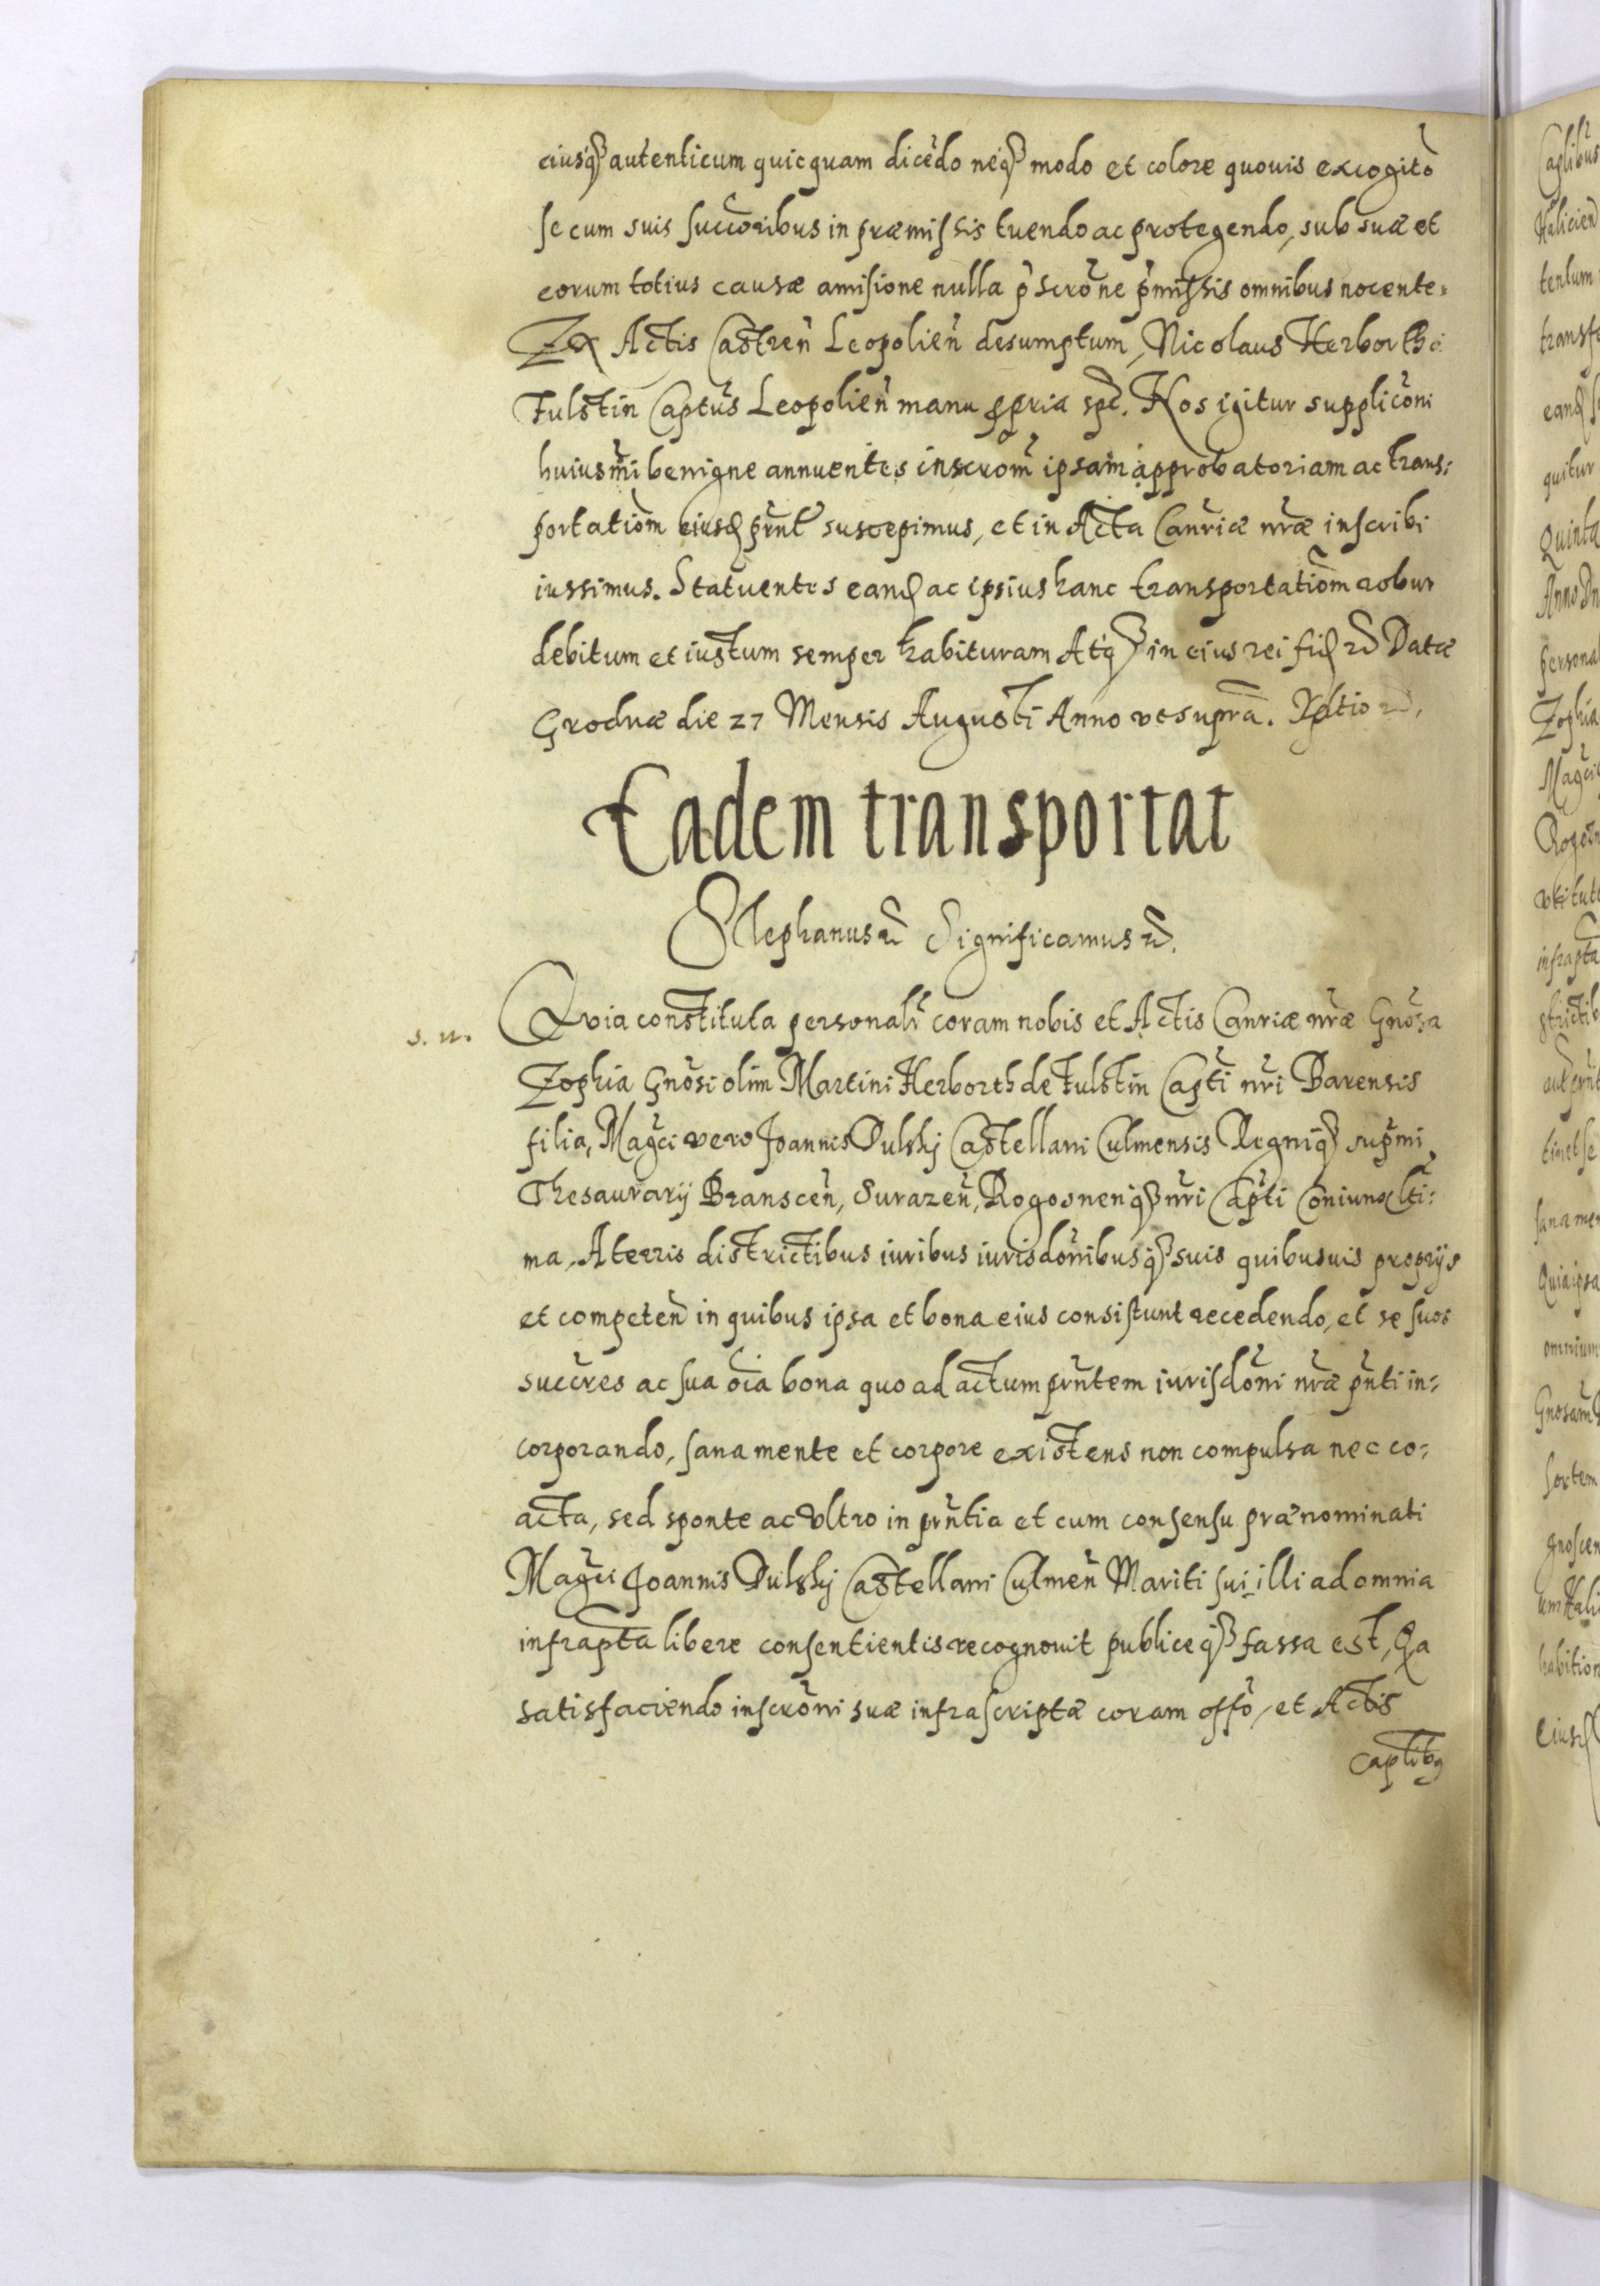 eiusq̃ autenticum quicquam dicẽdo neq̃ modo et colore quouis excogitõ
se cum suis succoribus in præmissis tuendo ac protegendo, sub suæ et
eorum totius causæ amisione nulla p̃scrone p̃missis omnibus nocente.
Ex Actis Castreñ Leopolieñ desumptum, Nicolaus Herborth a
Fulstin Captus Leopolieñ manu ppria spt. Nos igitur supplicõni
huiusmi benigne annuentes inscrom̃ ipsam approbatoriam ac trans:
portatiom̃ eiusd prnt̃ suscepimus, et in Acta Canriæ nr̃æ inscribi
iussimus. Statuentes eand ac ipsius hanc transportatiom̃ robur
debitum et iustum semper habituram Atq̃ in eius rei fid etc̃ Datæ
Grodnæ die 27 Mensis Augusti Anno vt supra.
Eadem transportat
Stephanus etc̃ Significamus etc̃.
s. n. Quia constituta personalr̃ coram nobis et Actis Canriæ nr̃æ Gnõsa
Zophia Gnõsi olim Martini Herborth de Fulstin Capti nr̃i Barensis
filia, Magci vero Joannis Dulskj Castellani Culmensis Regniq̃ supmi
Thesaurarij Bransceñ, Surazeñ, Rogosnenq̃ nr̃i Capti Coniunx lti:
ma, A terris districtibus iuribus iurisdonibusq̃ suis quibusuis proprijs
et competeñ in quibus ipsa et bona eius consistunt recedendo, et se suos
succres ac sua oĩa bona quo ad actum prñtem iurisdõni nr̃æ pñti in:
corporando, sana mente et corpore existens non compulsa nec co:
acta, sed sponte ac vltro in prñtia et cum consensu prænominati
Magci Joannis Dulskj Castellani Culmeñ Mariti sui illi ad omnia
infrapta libere consentientis recognouit publiceq̃ fassa est, Qa
satisfaciendo inscrõni suæ infrascriptæ coram offõ, et Actis
Captlibg